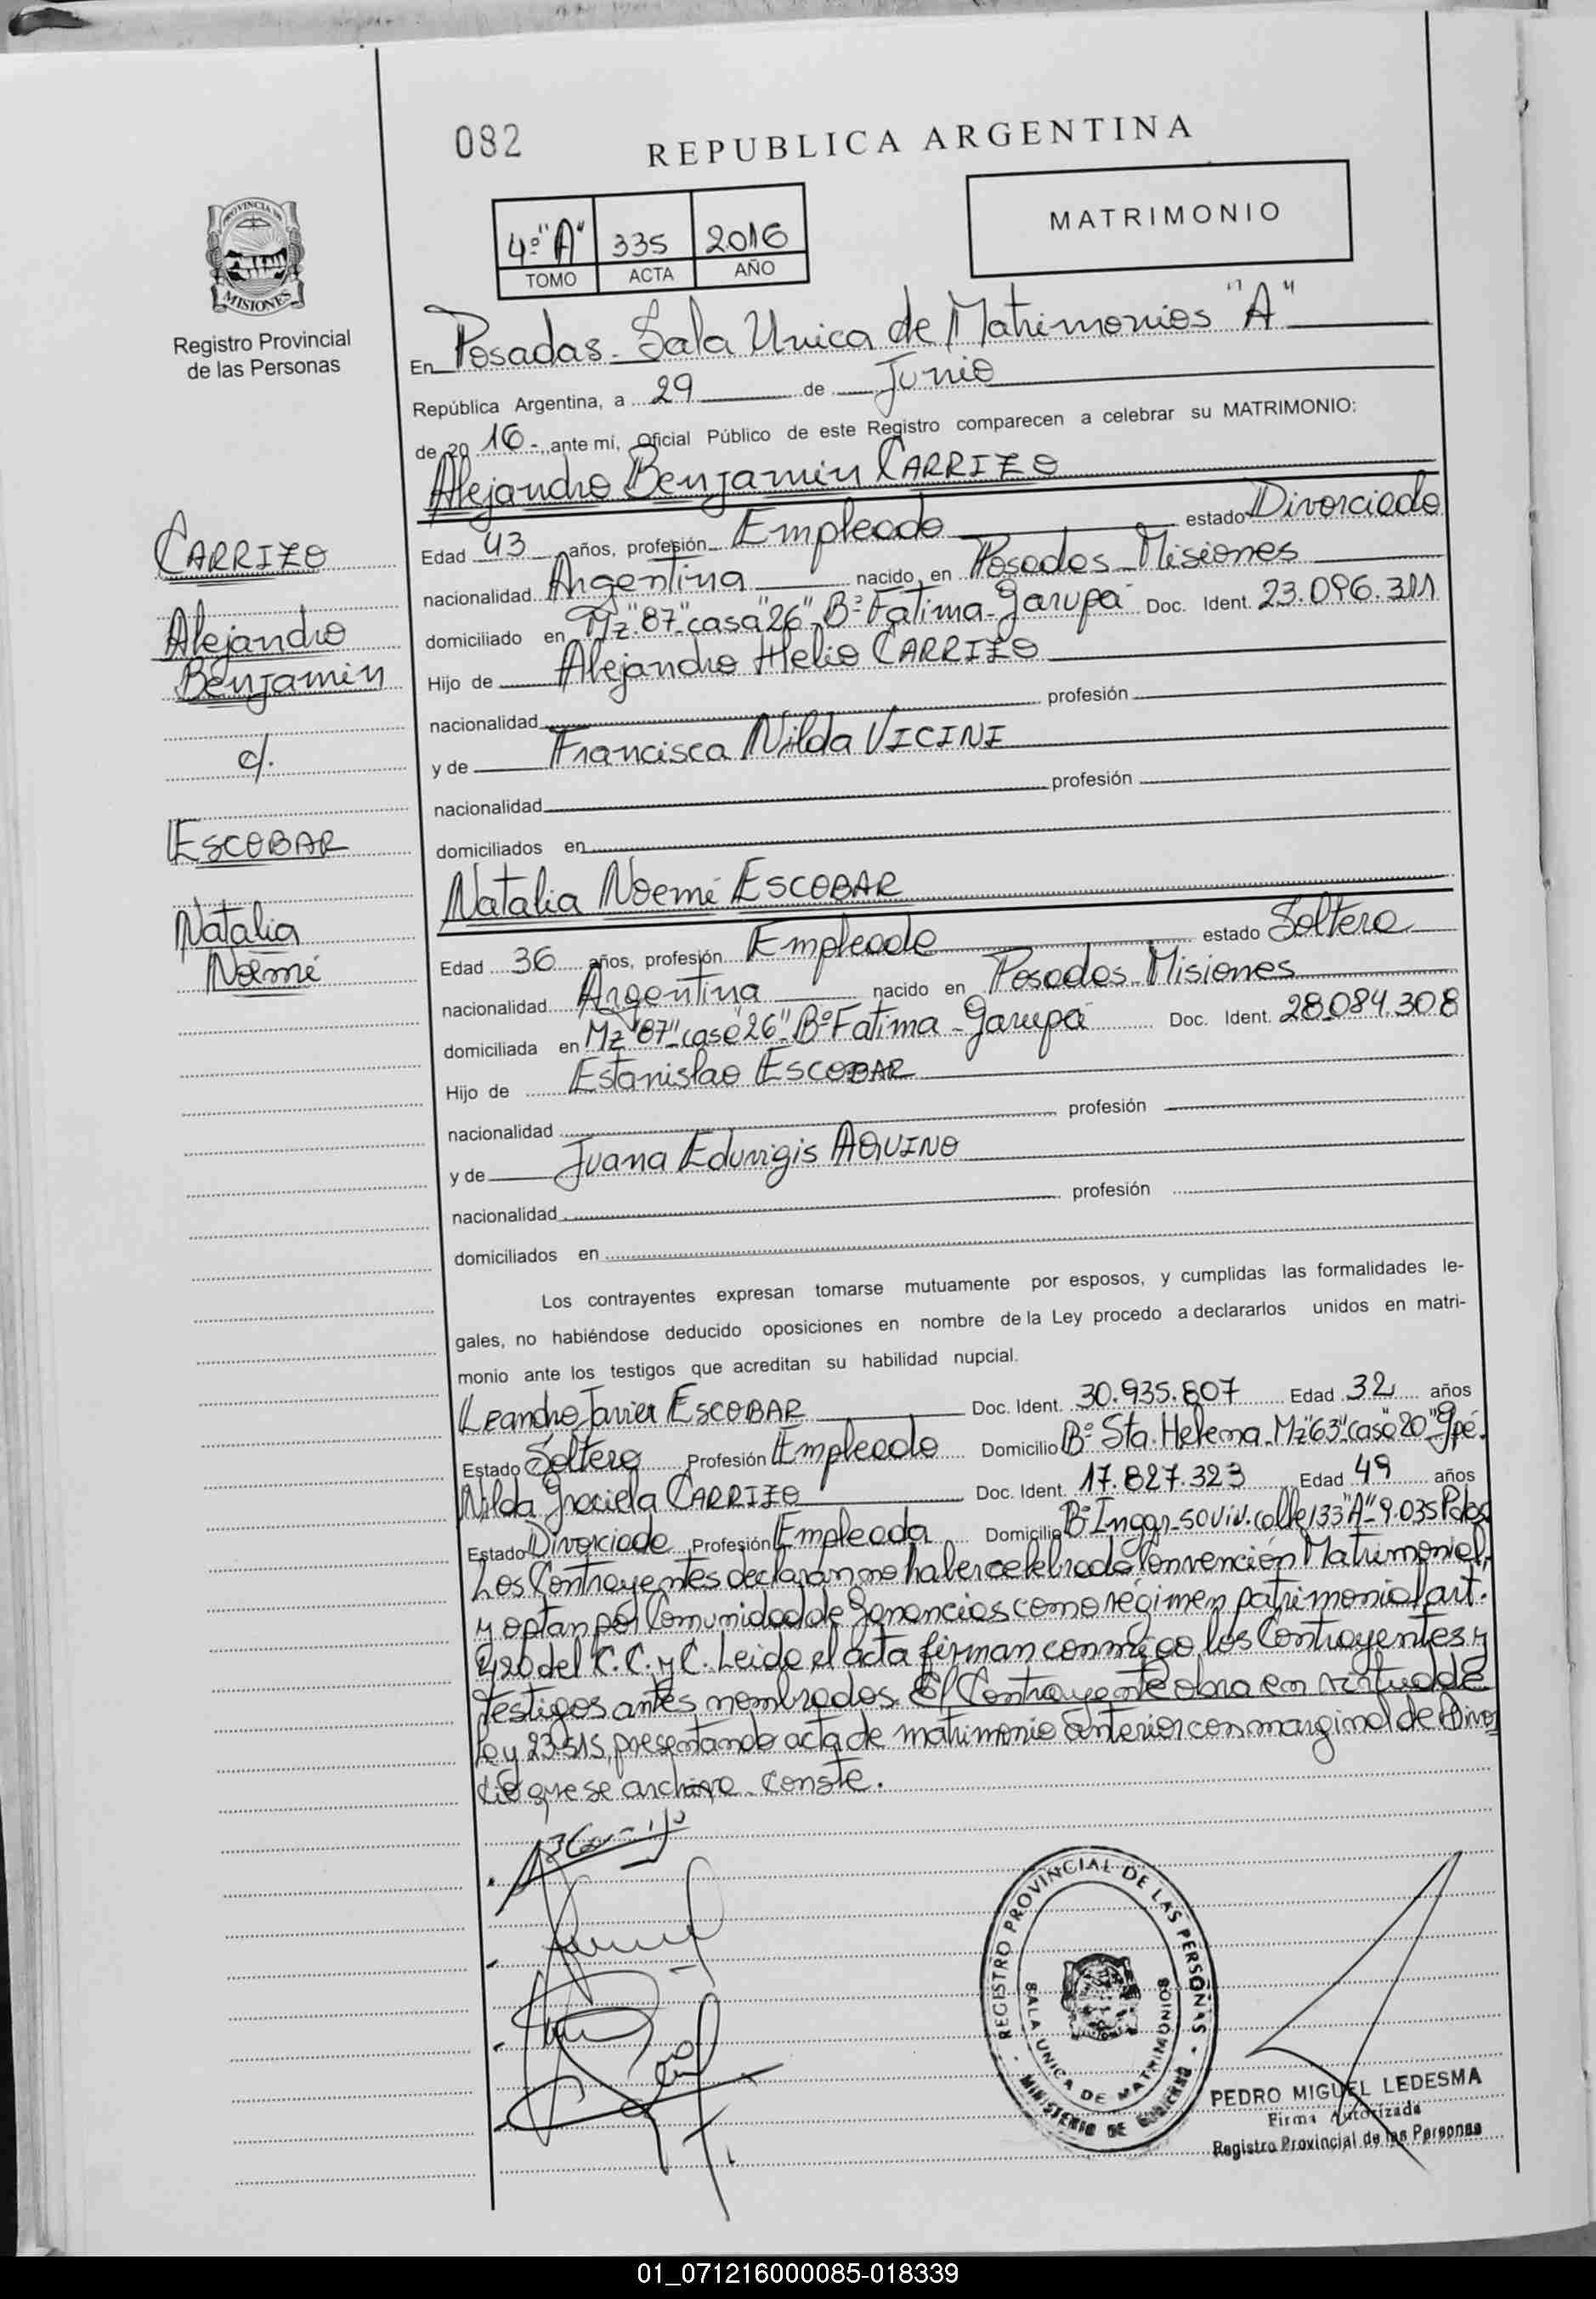 082
REPUBLICA ARGENTINA
PROVINCIA DE
MISIONES
Registro Provincial
de las Personas
4º "A" 335 2016
TOMO ACTA AÑO
MATRIMONIO
En Posadas - Sala Unica de Matrimonios "A"
República Argentina, a 29 de Junio
de 20 16 - ante mí, Oficial Público de este Registro comparecen a celebrar su MATRIMONIO:
Alejandro Benjamin CARRIZO
CARRIZO
Alejandro
Benjamin
c/.
ESCOBAR
Natalia
Noemí
Edad 43 años, profesión Empleado estado Divorciado
nacionalidad Argentina nacido en Posadas - Misiones
domiciliado en Mz "87" - casa "26" - Bº Fatima - Garupa Doc. Ident. 23.096.311
Hijo de Alejandro Helio CARRIZO
nacionalidad profesión
y de Francisca Nilda VICINI
nacionalidad profesión
domiciliados en
Natalia Noemí ESCOBAR
Edad 36 años, profesión Empleada estado Soltera
nacionalidad Argentina nacido en Posadas - Misiones
domiciliada en Mz "87" - casa "26" Bº Fatima - Garupa Doc. Ident. 28.084.308
Hijo de Estanislao ESCOBAR
nacionalidad profesión
y de Juana Eduvigis AQUINO
nacionalidad profesión
domiciliados en
Los contrayentes expresan tomarse mutuamente por esposos, y cumplidas las formalidades le-
gales, no habiéndose deducido oposiciones en nombre de la Ley procedo a declararlos unidos en matri-
monio ante los testigos que acreditan su habilidad nupcial.
Leandro Javier ESCOBAR Doc. Ident. 30.935.807 Edad 32 años
Estado Soltero Profesión Empleado Domicilio Bº Sta. Helena - Mz "63" casa "20" Gpá.
Nilda Graciela CARRIZO Doc. Ident. 17.827.323 Edad 49 años
Estado Divorciada Profesión Empleada Domicilio Bº Ingar - 50 viv. calle 133 "A" - 9.035 Pdas
Los Contrayentes declaran no haber celebrado Convención Matrimonial,
y optan por Comunidad de Ganancias como régimen patrimonial art.
420 del C.C. y C. Leida el acta firman conmigo los Contrayentes y
testigos antes nombrados. El Contrayente obra en virtud de
Ley 23.515, presentando acta de matrimonio anterior con marginal de Divor
cio que se archiva. Conste.
REGISTRO PROVINCIAL DE LAS PERSONAS
SALA UNICA DE MATRIMONIOS
MINISTERIO DE GOBIERNO
PEDRO MIGUEL LEDESMA
Firma Autorizada
Registro Provincial de las Personas
01_071216000085-018339